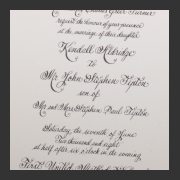 request the honour of your presence
at the marriage of their daughter
Kendall Aldridge
to
Mr. John Stephen Tipton
son of
Mr. and Mrs. Stephen Paul Tipton
Saturday, the seventh of June
Two thousand and eight
at half after six o'clock in the evening
First United